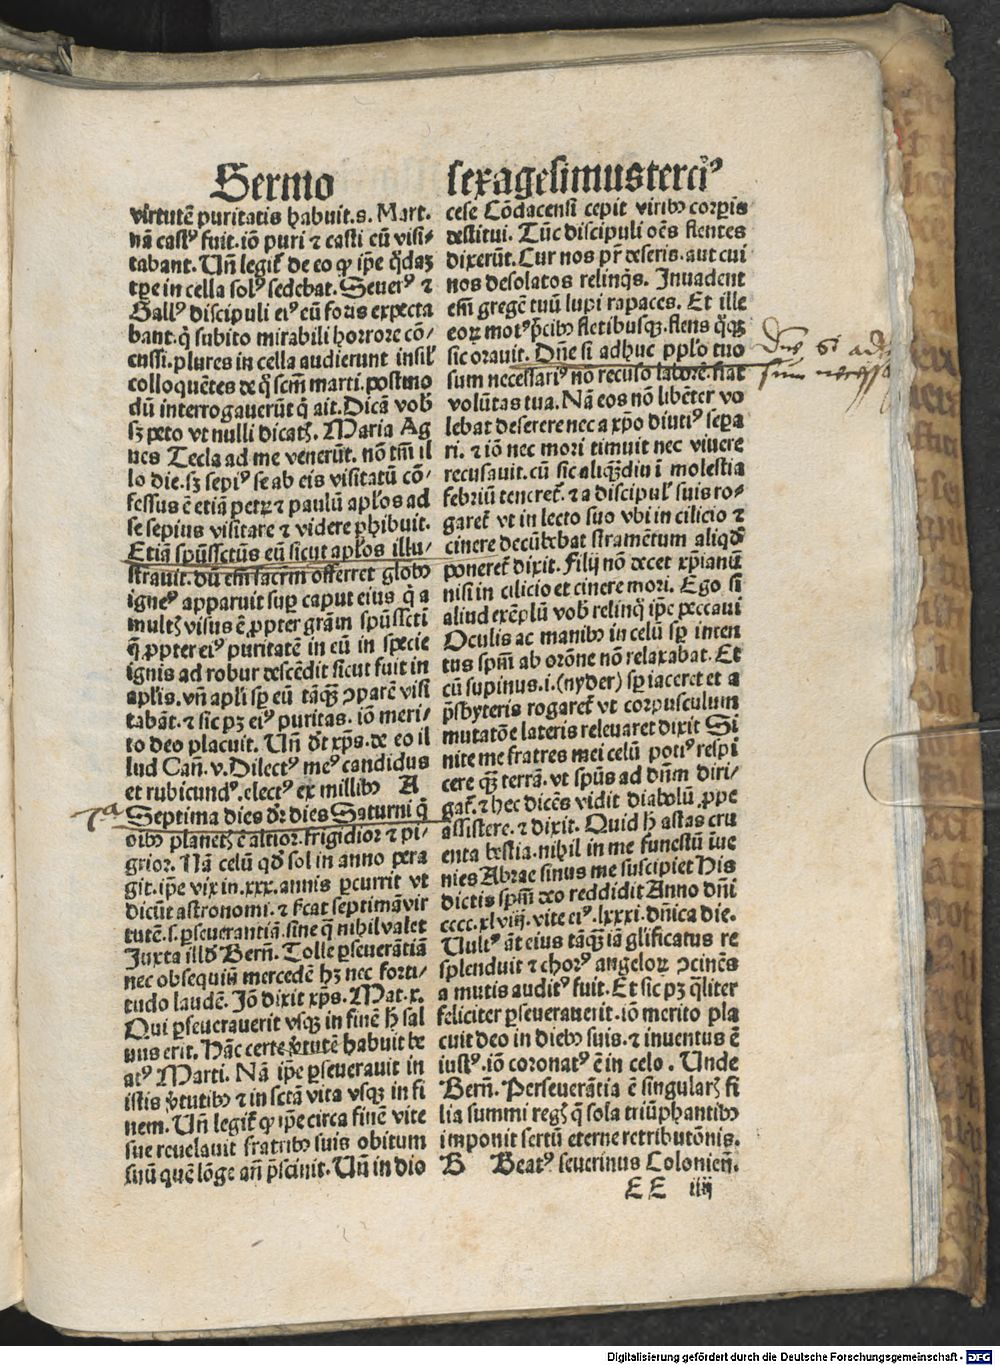 Sermo sexagesimusterciꝰ
virtutē puritatis habuit.s. Mart.
nā castꝰ fuit.iō puri ⁊ casti eū visi⸗
tabant. Uñ legit᷑ de eo ꝙ ip̄e q̄daꝫ
tꝑe in cella solꝰ sedebat. Seueiꝰ ⁊
Gallꝰ discipuli eiꝰ eū foris expecta
bant.q̇ subito mirabili horrore cō⸗
cussi.plures in cella audierunt insil᷑
colloquētes ⁊ q̇ scm̄ marti.postmo
dū interrogauerūt q̇ ait. Dicā vob̄
sꝫ peto vt nulli dicatꝭ. Maria Ag
nes Tecla ad me venerūt. nō tm̄ il
lo die.sꝫ sepiꝰ se ab eis visitatū cō⸗
fessus ē etiā petrꝫ ⁊ paulū apl̄os ad
se sepius visitare ⁊ videre ꝑhibuit.
Etiā spūssctūs eū sicut apl̄os illu⸗
strauit. dū em̄ sacrm̄ offerret globꝰ
igneꝰ apparuit suꝑ caput eius q̇ a
multꝭ visus ē ꝓpter grām spūsscti
q̄ ꝓpter eiꝰ puritatē in eū in specie
ignis ad robur descēdit sicut fuit in
aplīs. vñ apl̄i sꝑ eū tāqꝫ ꝯparē visi
tabāt. ⁊ sic pꝫ eiꝰ puritas. iō meri⸗
to deo placuit. Uñ d̄r xp̄s. de eo il
lud Cañ. v. Dilectꝰ meꝰ candidus
et rubicundꝰ.electꝰ ex millibꝰ A
7ª
Septima dies d̄r dies Saturni q̇
oībꝰ planetꝭ ē altior.frigidior ⁊ pi⸗
grior. Nā celū qd̄ sol in anno pera
git.ip̄e vix in.xxx.annis ꝑcurrit vt
dicūt astronomi. ⁊ sc̄at septimā vir
tutē.s.ꝑseuerantiā.sine q̄ nihil valet
Juxta illd̄ Bern̄. Tolle ꝑseuerātiā
nec obsequiū mercedē hꝫ nec forti⸗
tudo laudē. Jō dixit xp̄s. Mat.x.
Qui ꝑseuerauerit vsqꝫ in finē h̄ sal
uus erit. Hāc certe v̇tutē habuit be
atꝰ Marti. Nā ip̄e ꝑseuerauit in
istis v̇tutibꝰ ⁊ in sctā vita vsqꝫ in fi
nem. Uñ legit᷑ ꝙ ip̄e circa finē vite
sue reuelauit fratribꝰ suis obitum
suū quē lōge añ p̄sciuit. Uñ in dio
cese Cōdacensi cepit viribꝰ corꝑis
destitui. Tūc discipuli oēs flentes
dixerūt. Cur nos pr̄ deseris.aut cui
nos desolatos relinq̄s. Inuadent
em̄ gregē tuū lupi rapaces. Et ille
eoꝝ motꝰ p̄cibꝰ fletibusqꝫ.flens q̇qꝫ
sic orauit. Dn̄e si adhuc ppl̄o tuo
sum necessariꝰ nō recuso laborē.fiat
volūtas tua. Nā eos nō libēter vo
lebat deserere nec a xp̄o diutiꝰ sepa
ri. ⁊ iō nec mori timuit nec viuere
recusauit. cū sic aliqꝫdiu ī molestia
febriū teneret᷑. ⁊ a discipul᷑ suis ro⸗
garet᷑ vt in lecto suo vbi in cilicio ⁊
cinere decūbebat stramētum aliqd̄
poneret᷑ dixit. Filij nō decet xp̄ianū
nisi in cilicio et cinere mori. Ego si
aliud exēplū vob̄ relinq̄ ip̄e peccaui
Oculis ac manibꝰ in celū sꝑ inten
tus spm̄ ab orōne nō relaxabat. Et
cū supinus.i.(nyder) sꝑ iaceret et a
p̄sbyteris rogaret᷑ vt corpusculum
mutatōe lateris releuaret dixit Si
nite me fratres mei celū potiꝰ respi
cere qꝫ terrā. vt spūs ad dn̄m diri⸗
gat᷑. ⁊ hec dicēs vidit diabolū ꝓpe
assistere. ⁊ dixit. Quid h̄ astas cru
enta bestia.nihil in me funestū iue
nies Abrae sinus me suscipiet His
dictis spm̄ deo reddidit Anno dn̄i
cccc.xlviij. vite eiꝰ.lxxxi.dn̄ica die.
Uultꝰ āt eius tāqꝫ iā glīficatus re
splenduit ⁊ chorꝰ angeloꝝ ꝯcinēs
a mutis auditꝰ fuit. Et sic pꝫ q̄liter
feliciter ꝑseuerauerit.iō merito pla
cuit deo in diebꝰ suis. ⁊ inuentus ē
iustꝰ.iō coronatꝰ ē in celo. Unde
Bern̄. Perseuerātia ē singularꝭ fi
lia summi regꝭ q̄ sola triūphantibꝰ
imponit sertū eterne retributōnis.
B Beatꝰ seuerinus Colonien̄.
EE iiij
Dn̄e si ad
sum necessa
Digitalisierung gefördert durch die Deutsche Forschungsgemeinschaft - DFG